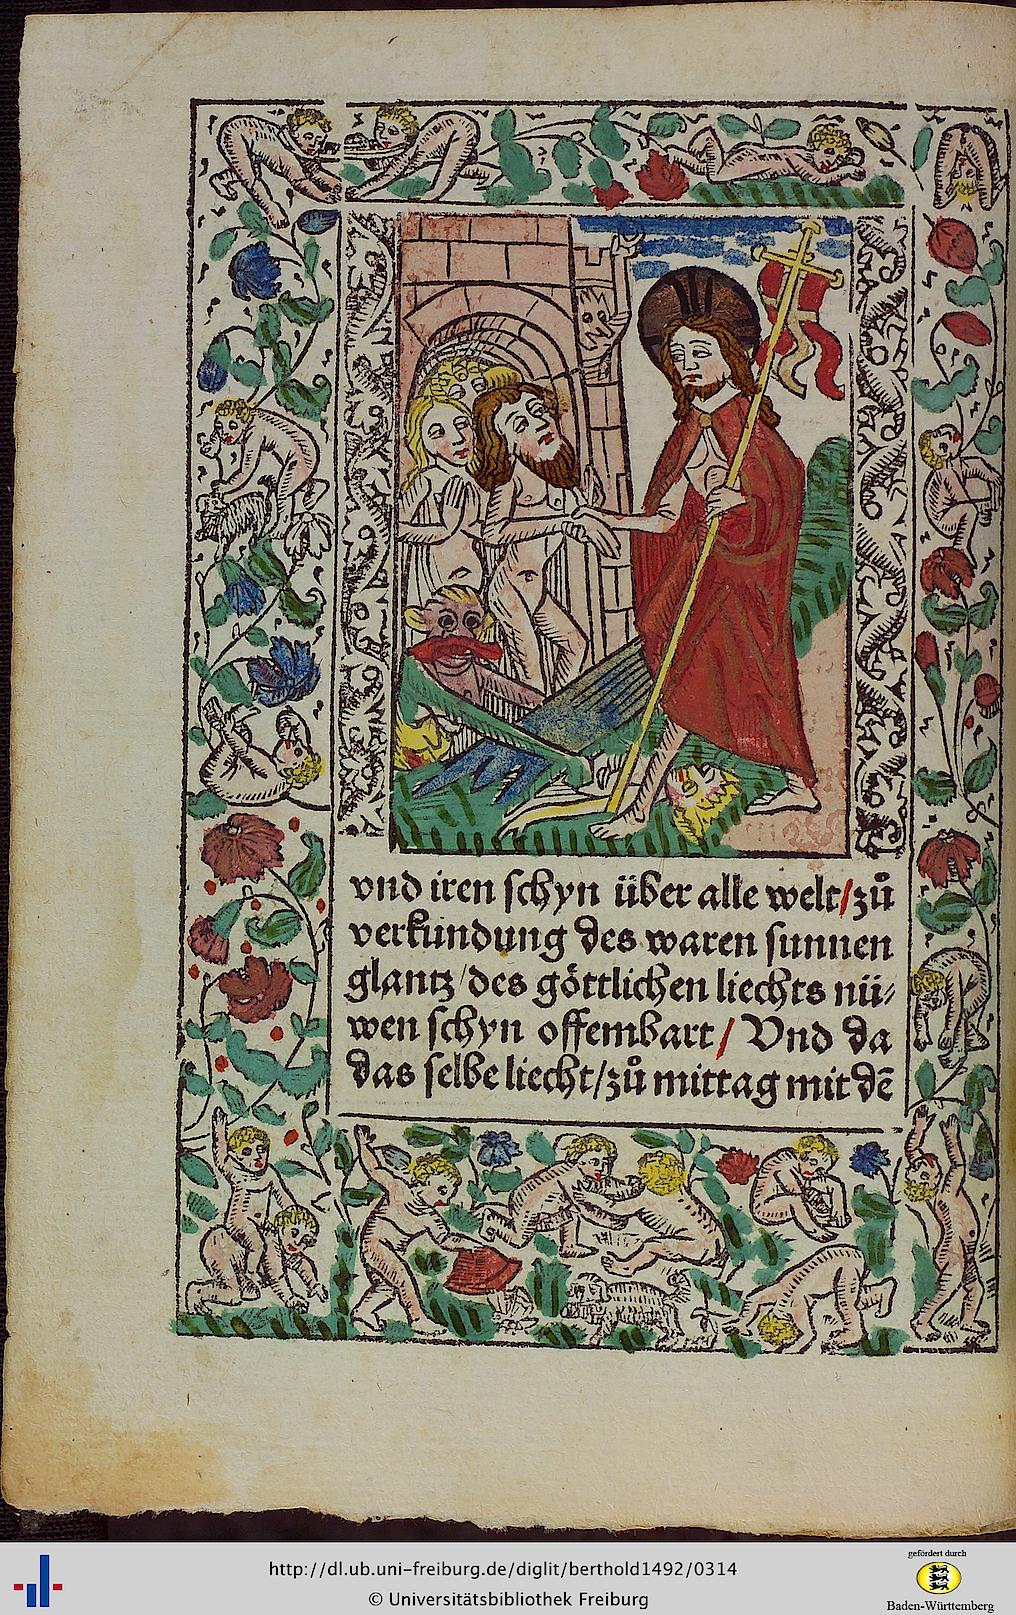 vnd iren schyn über alle welt/zuͦ
verkundung des waren sunnen
glantz/des göttlichen liechts nü⸗
wen schyn offembart/ Vnd da
das selbe liecht/zuͦ mittag mit dē
http://dl.ub.uni-freiburg.de/diglit/berthold1492/0314
© Universitätsbibliothek Freiburg
gefördert durch
Baden-Württemberg